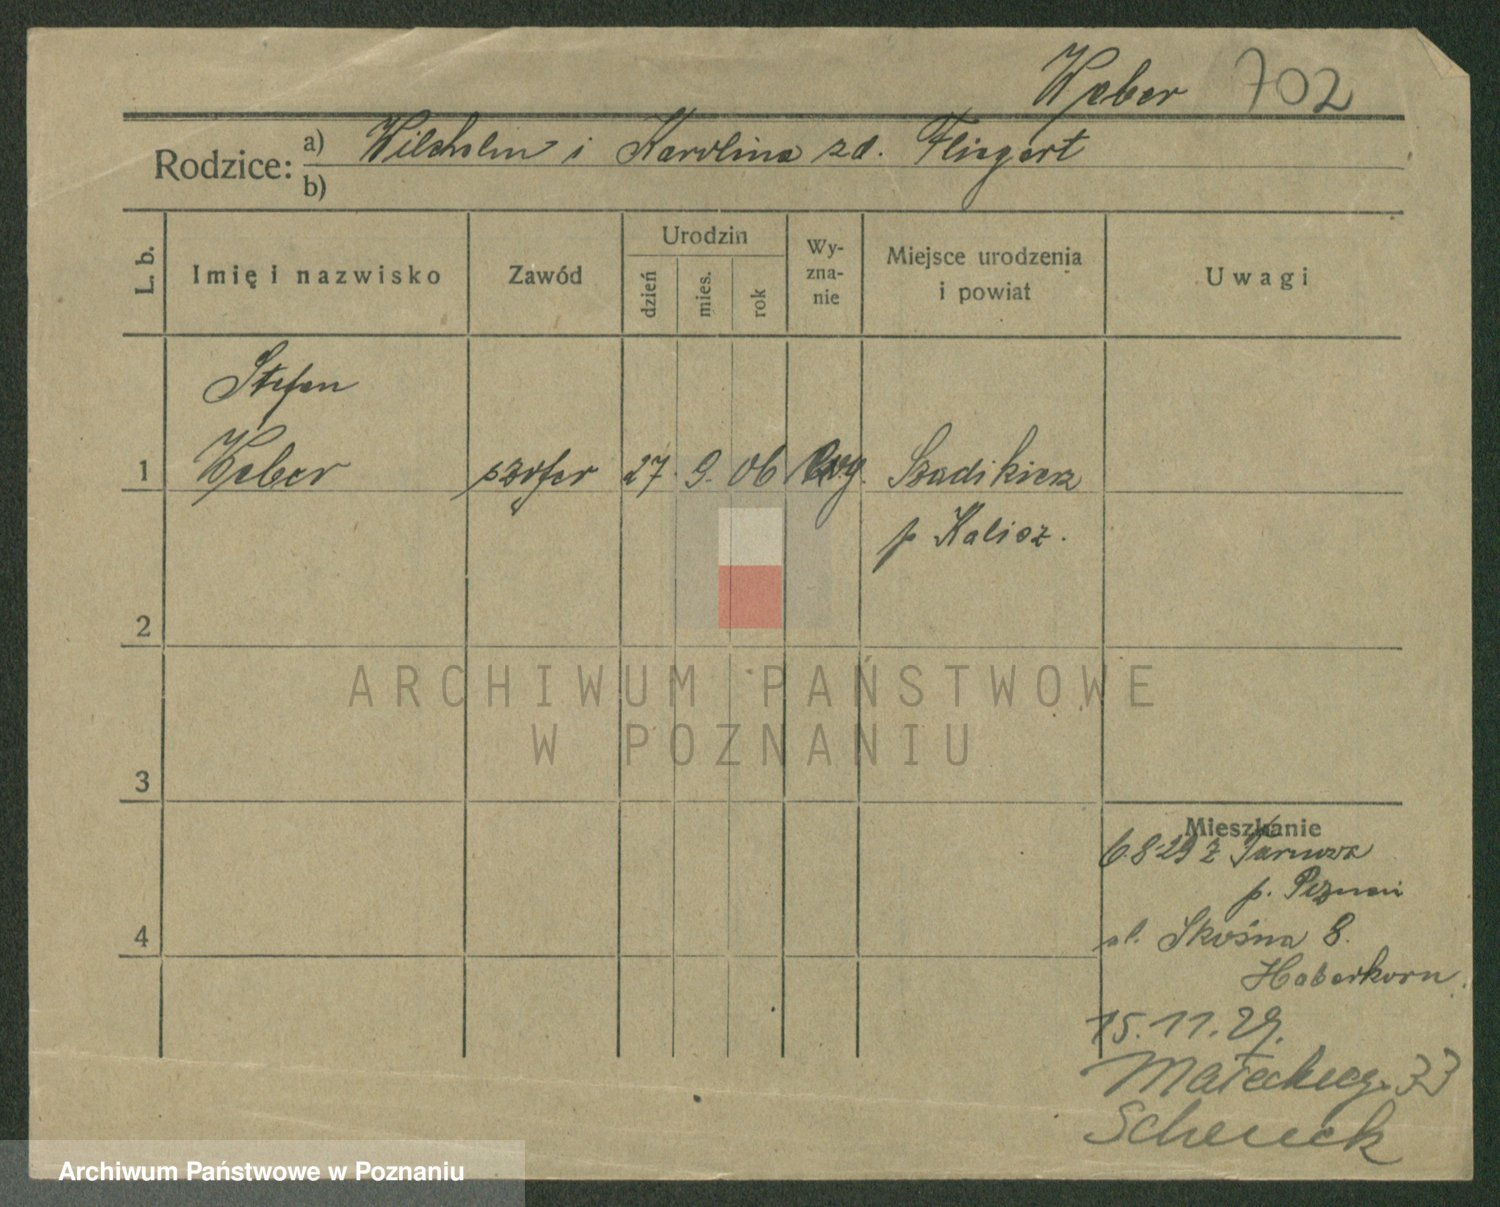 Weber 702
Rodzice: a) Wilhelm i Karolina zd. Fliegert
b)
L. b. Imię i nazwisko Zawód Urodzin dzień mies. rok Wy-zna-nie Miejsce urodzenia i powiat Uwagi
Stefan
1 Weber szofer 27. 9. 06 ewg. Szadikierz
p Kalisz.
2
ARCHIWUM PAŃSTWOWE
W POZNANIU
3
Mieszkanie
6 8 29 z Tarnowa
p. Poznań
ul. Skośna 8.
Haberkorn
4
15.11.29.
Małeckieg. 33
Schenck
Archiwum Państwowe w Poznaniu